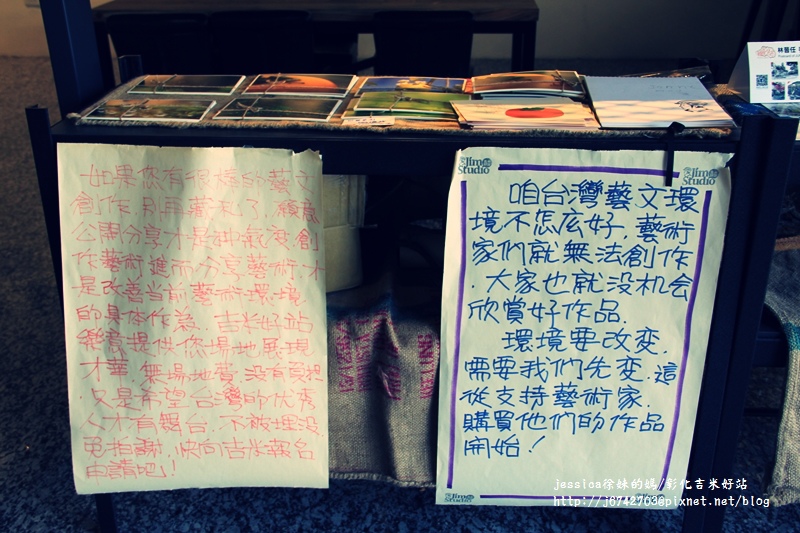 如果您有很棒的藝文
創作.別再藏私了,願意
公開分享才是
作藝術進而分享藝術.才
是改善當前藝術環境
的具体作為.吉米好站
樂意提供您場地展現
才華.無場地費.沒有
.只是希望台灣的优秀
人才有舞台.不被埋没
免拍謝.快向吉米報名
申請吧!
Jim Studio
Jim Studio
咱台灣藝文環
境不怎么好.藝術
家們就無法創作
.大家也就没机会
欣賞好作品.
環境要改变.
需要我們先变.這
從支持藝術家.
購買他們的作品
開始!
Jim Studio
jessica徐妹的媽/彰化吉米好站
http://j6742703@pixnet.net/blog